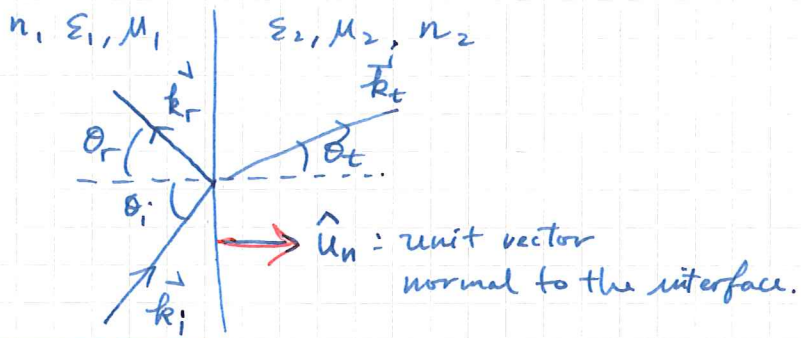 n₁ ε₁, μ₁ ε₂, μ₂, n₂
k⃗r k⃗t
θr θt
θi
ûn = unit vector
normal to the interface.
k⃗i